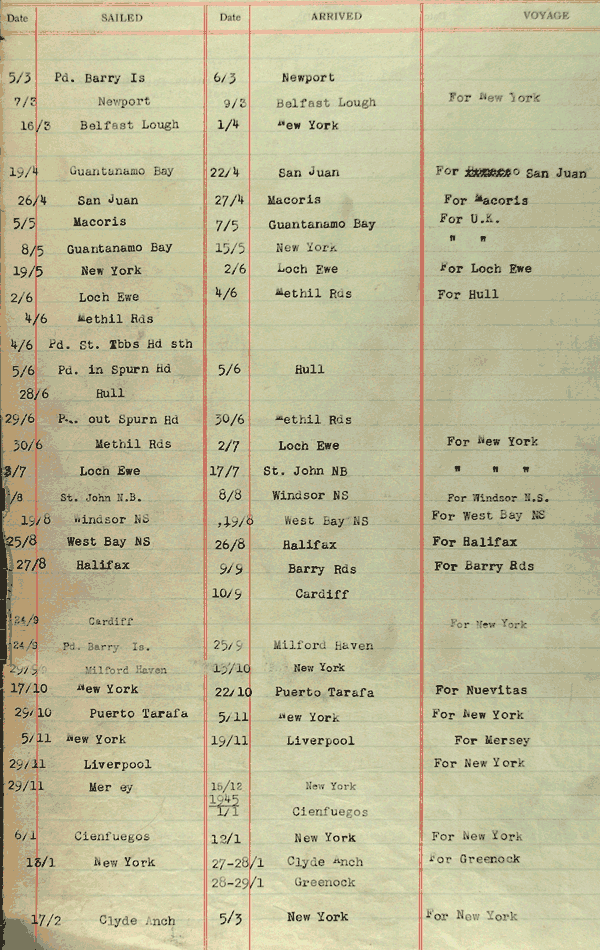 Date SAILED Date ARRIVED VOYAGE
5/3 Pd. Barry Is 6/3 Newport
7/3 Newport 9/3 Belfast Lough For New York
16/3 Belfast Lough 1/4 New York
19/4 Guantanamo Bay 22/4 San Juan For San Juan
26/4 San Juan 27/4 Macoris For Macoris
5/5 Macoris 7/5 Guantanamo Bay For U.K.
8/5 Guantanamo Bay 15/5 New York " "
19/5 New York 2/6 Loch Ewe For Loch Ewe
2/6 Loch Ewe 4/6 Methil Rds For Hull
4/6 Methil Rds
4/6 Pd. St. Ibbs Hd sth
5/6 Pd. in Spurn Hd 5/6 Hull
28/6 Hull
29/6 out Spurn Hd 30/6 Methil Rds
30/6 Methil Rds 2/7 Loch Ewe For New York
3/7 Loch Ewe 17/7 St. John NB " " "
/8 St. John N.B. 8/8 Windsor NS For Windsor N.S.
19/8 Windsor NS ,19/8 West Bay NS For West Bay NS
25/8 West Bay NS 26/8 Halifax For Halifax
27/8 Halifax 9/9 Barry Rds For Barry Rds
10/9 Cardiff
24/9 Cardiff For New York
24/9 Pd. Barry Is. 25/9 Milford Haven
29/9 Milford Haven 15/10 New York
17/10 New York 22/10 Puerto Tarafa For Nuevitas
29/10 Puerto Tarafa 5/11 New York For New York
5/11 New York 19/11 Liverpool For Mersey
29/11 Liverpool For New York
29/11 Mer ey 15/12 New York
1945
1/1 Cienfuegos
6/1 Cienfuegos 12/1 New York For New York
13/1 New York 27-28/1 Clyde Anch For Greenock
28-29/1 Greenock
17/2 Clyde Anch 5/3 New York For New York